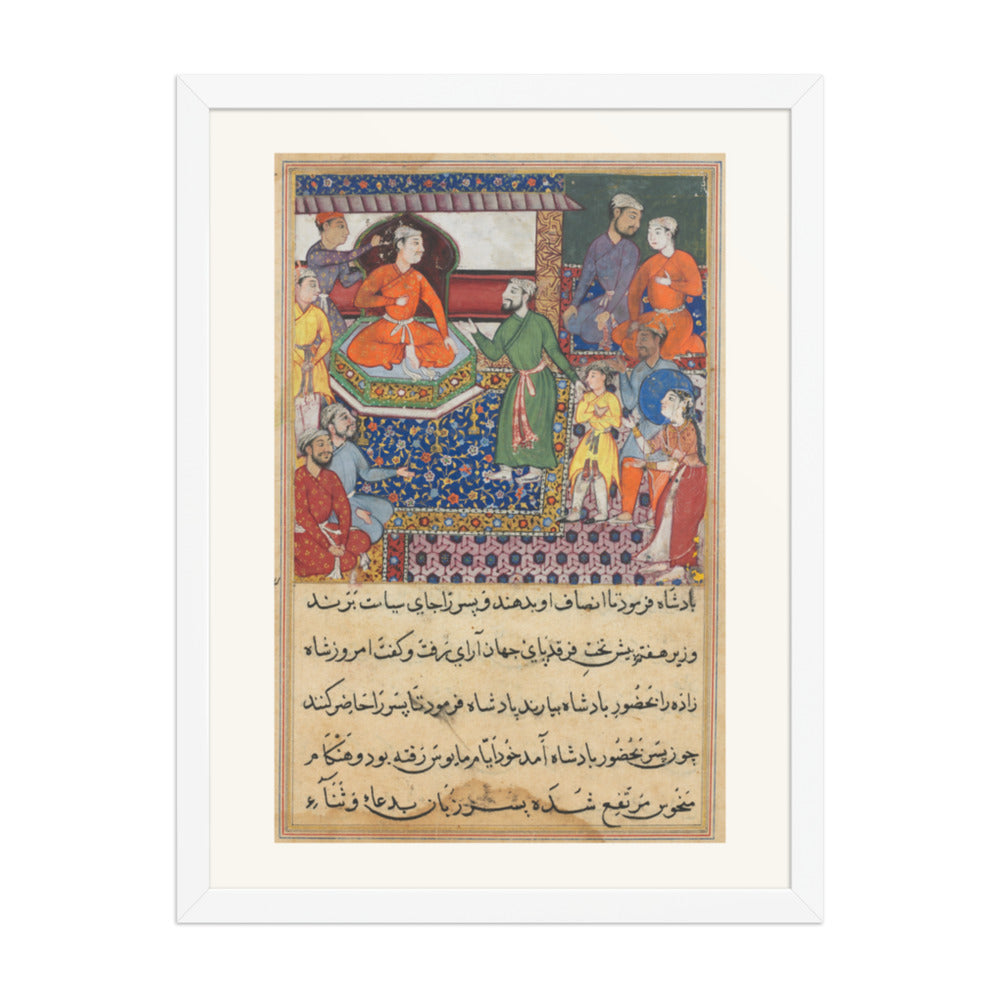 بادشاه فرمود تا انصاف او بدهند و پسر را جاي سیاست برند
وزیر هفتم پیش تخت فرقد پاي جهان آراي رفت و گفت امروز شاه
زاده را بحضور بادشاه بیارند بادشاه فرمود تا پسر را حاضر کنند
چون پسر بحضور بادشاه آمد خود ایام مایوس رفته بود و هنکام
منحوس مرتفع شده پسر زبان بدعاء و ثناء